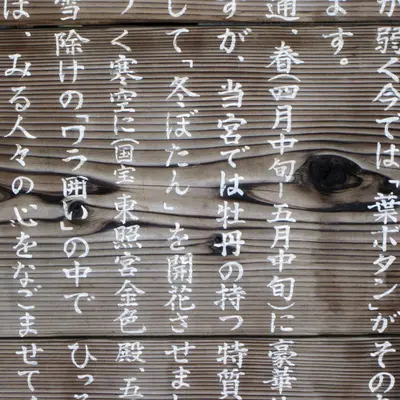 が弱く今では「葉ボタン」がその
ます。
通、春(四月中旬－五月中旬)に豪華
すが、当宮では牡丹の持つ特質
して、「冬ぼたん」を開花させま
く寒空に(国宝)東照宮金色殿、五
雪除けの「ワラ囲い」の中でひっそ
は、みる人々の心をなごませて